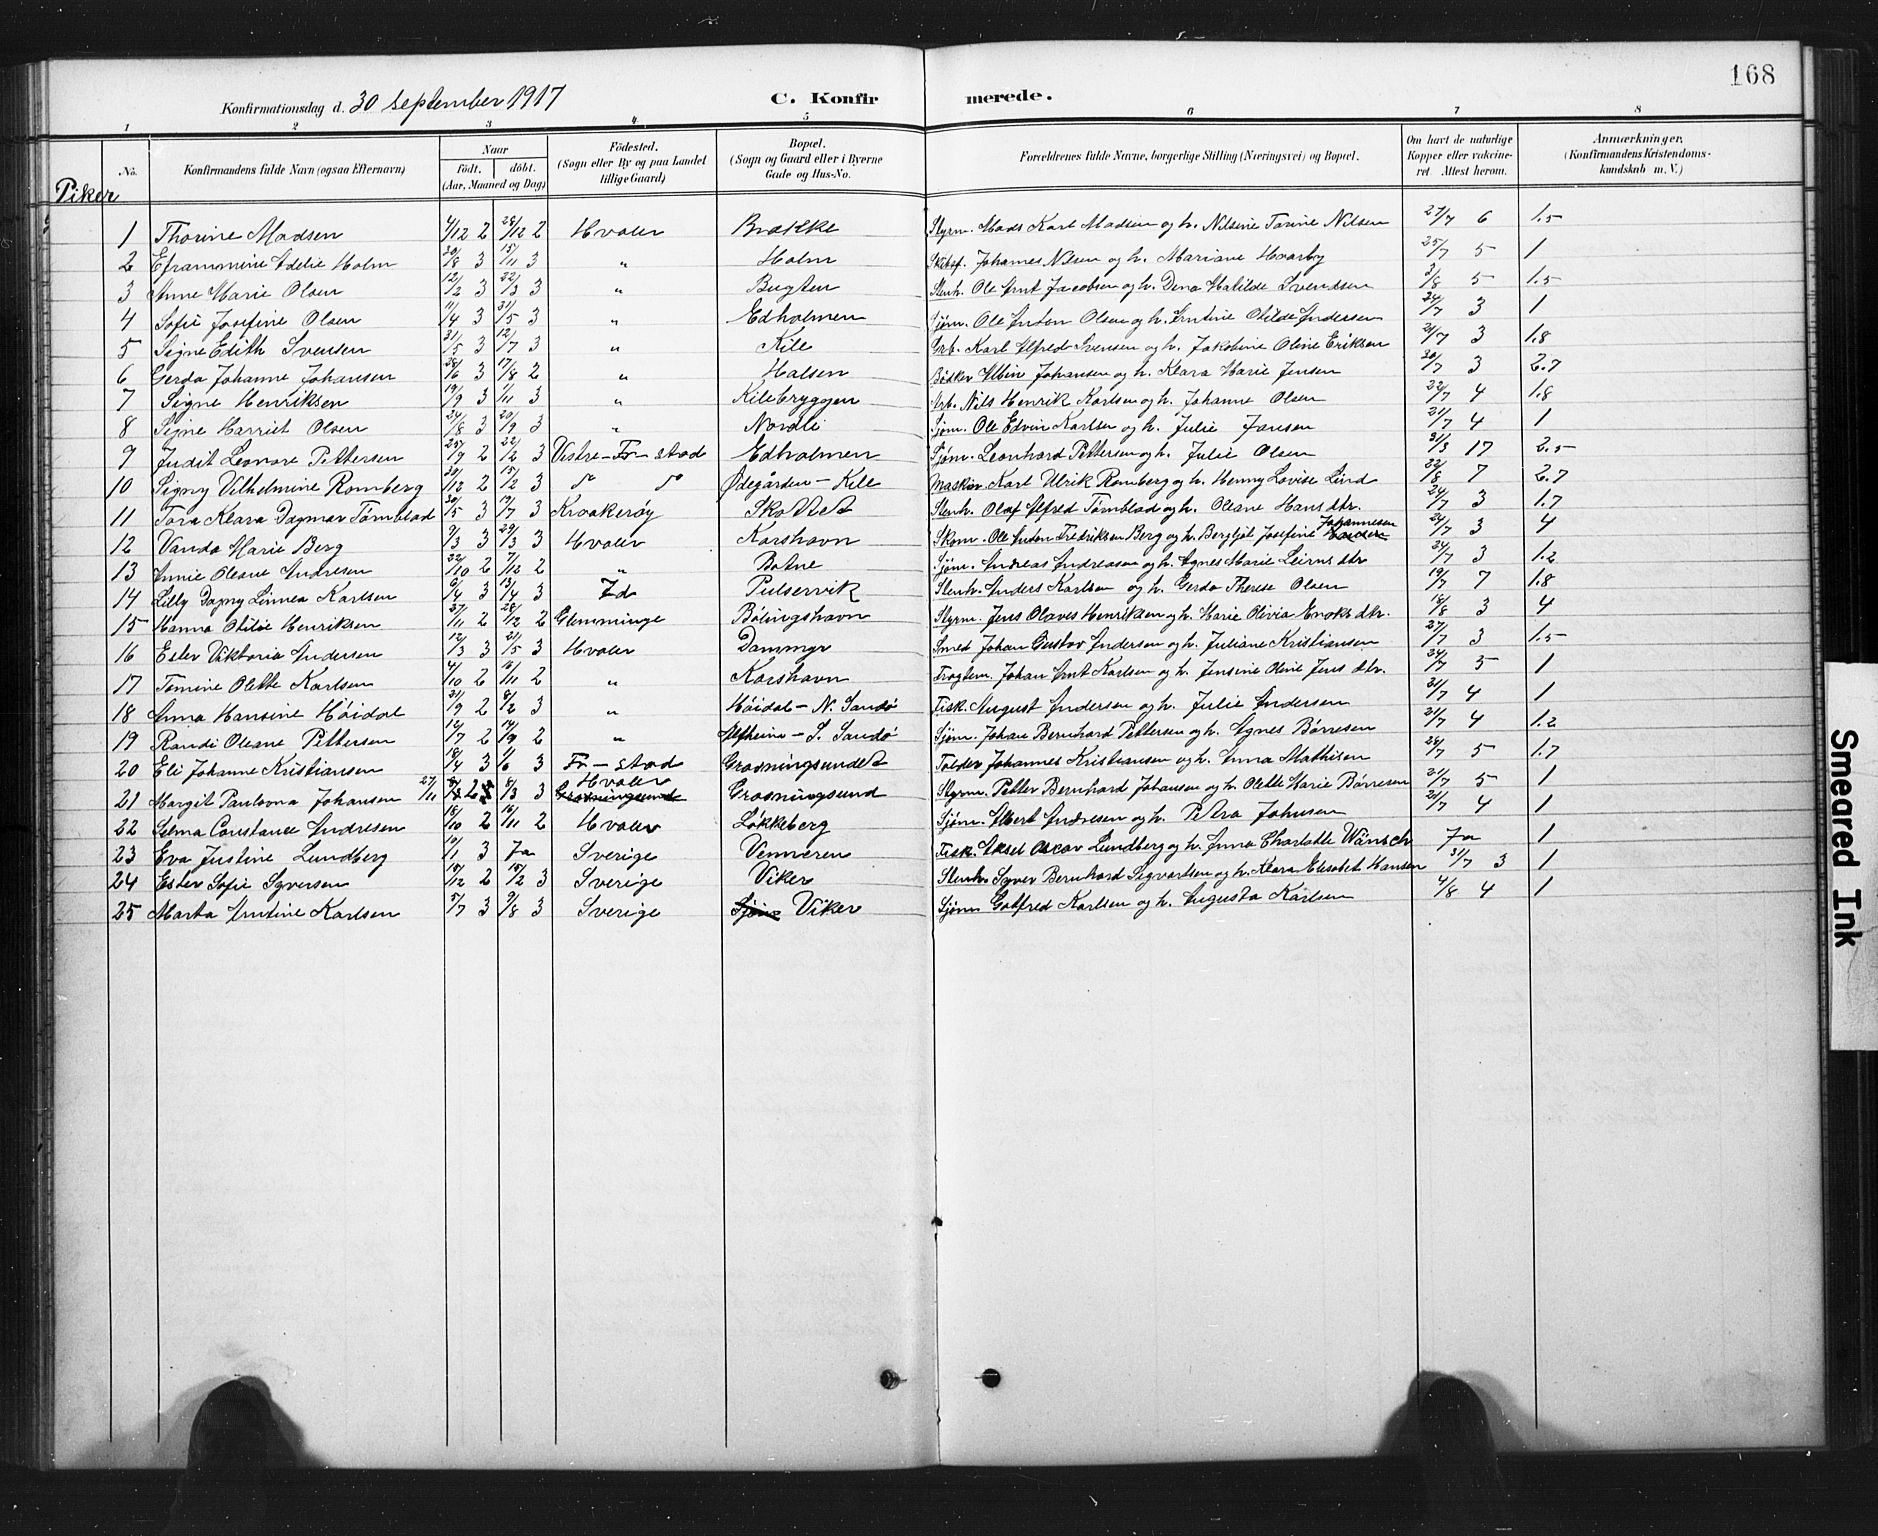 168
Konfirmationsdag d. 30 september 1917 C. Konfir merede.
1 2 3 4 5 6 7 8
No. Konfirmandens fulde Navn (ogsaa Efternavn) Naar født. døbt. (Aar, Maaned og Dag) Födested. (Sogn eller By og paa Landet tillige Gaard) Bopæl. (Sogn og Gaard eller i Byerne Gade og Hus-No. Forældrenes fulde Navne, borgerlige Stilling (Næringsvei) og Bopæl. Om havt de naturlige Kopper eller vakcineret. Attest herom. Anmærkninger. (Konfirmandens Kristendomskundskab m. V.)
Piker
1 Thorine Madsen 4/12 2 28/12 2 Hvaler Brække Styrm. Mads Karl Madsen og h. Nilsine Tomine Nilsen 27/7 6 1.5
2 Eframmine Adelie Holm 20/8 3 15/11 3 " Holm Skibsf. Johannes Nilsen og h. Mariane Hvarby 25/7 5 1
3 Anne Marie Olsen 12/2 3 22/3 3 " Bugten Stenh. Ole Arnt Jacobsen og h. Dena Matilde Svendsen 3/8 5 1.5
4 Sofie Josefine Olsen 11/4 3 31/5 3 " Edholmen Sjøm. Ole Anton Olsen og h. Antine Otilde Andersen 24/7 3 1
5 Signe Edith Svensen 31/5 3 12/7 3 " Kile Grb. Karl Alfred Svensen og h. Jakobine Oline Eriksen 21/7 3 1.8
6 Gerda Johanne Johansen 28/6 3 17/8 2 " Halsen Bødker Albin Johansen og h. Klara Marie Jensen 20/7 3 2.7
7 Signe Henriksen 19/9 3 1/11 3 " Kilebryggen Arb. Nils Henrik Karlsen og h. Johanne Olsen 22/7 4 1.8
8 Signe Harriet Olsen 24/8 3 20/9 3 " Nordli Sjøm. Ole Edvin Karlsen og h. Julie Jansen 21/7 4 1
9 Judit Leonore Pettersen 25/9 2 22/2 3 Vestre-Fr-stad Edholmen Sjøm. Leonhard Pettersen og h. Julie Olsen 31/3 17 2.5
10 Signy Vilhelmine Romberg 30/12 2 15/2 3 do do Ødegården-Kile Maskin. Karl Ulrik Romberg og h. Henny Lovise Lind 22/8 7 2.7
11 Tora Klara Dagmar Tømblad 30/5 3 19/7 3 Kraakerøy Skottet Stenh. Olaf Alfred Tømblad og h. Oleane Hans dtr. 24/7 3 1.7
12 Vanda Marie Berg 9/3 3 29/3 3 Hvaler Korshavn Skom. Ole Anton Fredriksen Berg og h. Bergljot Josefine Johannesen 24/7 3 4
13 Annie Oleane Andresen 22/10 2 7/12 2 " Botne Sjøm. Andreas Andreasen og h. Agnes Marie Leirus dtr 24/7 3 1.2
14 Lilly Dagny Linnea Karlsen 6/4 3 13/4 3 Id Pulservik Stenh. Anders Karlsen og h. Gerda Therese Olsen 19/7 7 1.8
15 Hanna Otilie Henriksen 27/11 2 28/12 2 Glemminge Bølingshavn Styrm. Jens Olaves Henriksen og h. Marie Olivia Enoks dtr. 18/8 3 4
16 Ester Viktoria Andersen 12/3 3 21/5 3 Hvaler Dammyr Smed Johan Gustav Andersen og h. Juliane Kristiansen 27/7 3 1.5
17 Tomine Olette Karlsen 4/10 2 16/11 2 " Korshavn Fragtem. Johan Arnt Karlsen og h. Jensine Oline Jens dtr. 24/7 3 1
18 Anna Hansine Høidal 21/9 2 8/2 3 " Høidal-N. Sandø Fisk. August Andersen og h. Julie Andersen 31/7 4 1
19 Randi Oleane Pettersen 12/7 2 14/9 2 " Alfheim-S. Sandø Sjøm. Johan Bernhard Pettersen og h. Agnes Børresen 21/7 4 1.2
20 Eli Johanne Kristiansen 18/4 3 1/6 3 Fr-stad Grosningsundet Tolder Johannes Kristiansen og h. Anna Mathisen 28/7 5 1.7
21 Margit Paulovna Johansen 27/11 2 8/3 3 Hvaler Grosningsund Styrm. Petter Bernhard Johansen og h. Olette Marie Børresen 21/7 5 1
22 Selma Constance Andresen 18/10 2 16/11 2 Hvaler Løkkeberg Sjøm. Albert Andresen og h. Petra Johnsen 21/7 4 1
23 Eva Justine Lundberg 10/1 3 Ja Sverige Venneren Fisk. Aksel Oscar Lundberg og h. Anna Charlotte Wänsch Ja 1
24 Ester Sofie Syversen 10/12 2 15/2 3 Sverige Viker Stenh. Syver Bernhard Sigvartsen og h. Klara Elisabet Hansen 31/7 3 1
25 Marta Antine Karlsen 5/7 3 9/8 3 Sverige Viker Sjøm Gotfred Karlsen og h. Augusta Karlsen 4/8 4 1
Smeared Ink